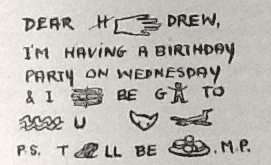 DEAR H DREW,
I'M HAVING A BIRTHDAY
PARTY ON WEDNESDAY
& I BE G TO
U
P.S. T LL BE .M.P.